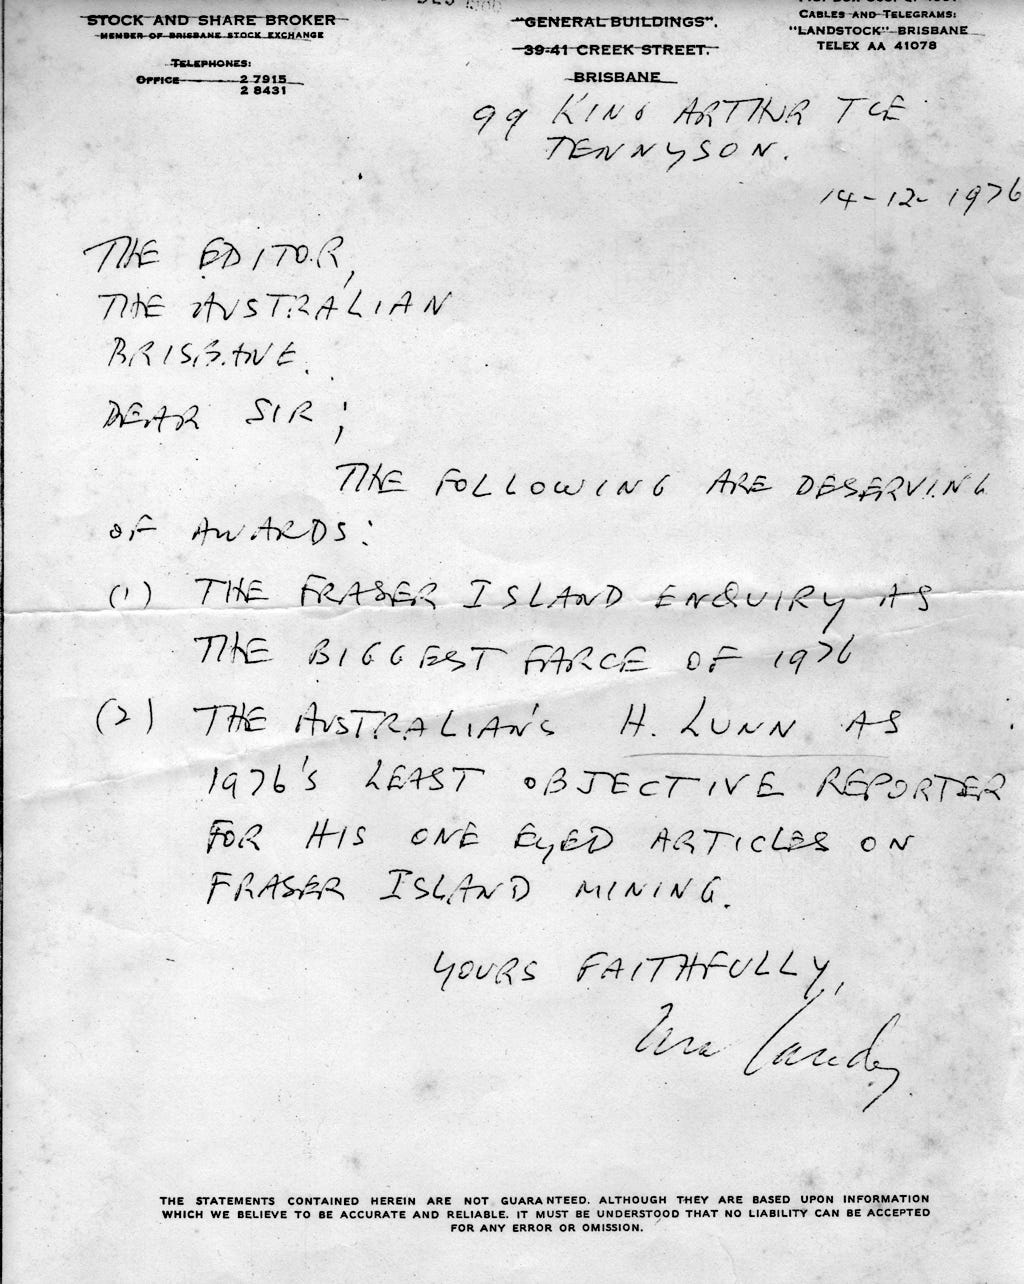 STOCK AND SHARE BROKER
MEMBER OF BRISBANE STOCK EXCHANGE
TELEPHONES:
OFFICE 2 7915
2 8431
"GENERAL BUILDINGS".
39-41 CREEK STREET.
BRISBANE
CABLES AND TELEGRAMS:
"LANDSTOCK" BRISBANE
TELEX AA 41078
99 KING ARTHUR TCE
TENNYSON.
14-12-1976
THE EDITOR,
THE AUSTRALIAN
BRISBANE.
DEAR SIR;
THE FOLLOWING ARE DESERVING
OF AWARDS:
(1) THE FRASER ISLAND ENQUIRY AS
THE BIGGEST FARCE OF 1976
(2) THE AUSTRALIAN'S H. LUNN AS
1976'S LEAST OBJECTIVE REPORTER
FOR HIS ONE EYED ARTICLES ON
FRASER ISLAND MINING.
YOURS FAITHFULLY,
THE STATEMENTS CONTAINED HEREIN ARE NOT GUARANTEED. ALTHOUGH THEY ARE BASED UPON INFORMATION
WHICH WE BELIEVE TO BE ACCURATE AND RELIABLE. IT MUST BE UNDERSTOOD THAT NO LIABILITY CAN BE ACCEPTED
FOR ANY ERROR OR OMISSION.